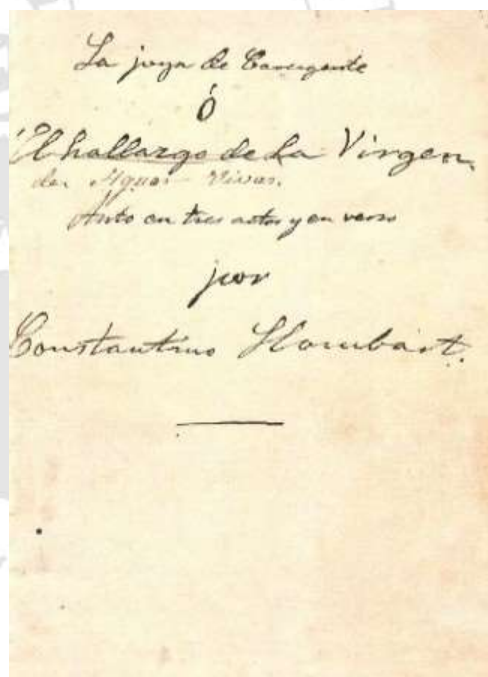 La joya de Carcagente
Ó
El hallazgo de la Virgen
de Aguas Vivas.
Auto en tres actos y en verso
por
Constantino Llombart.